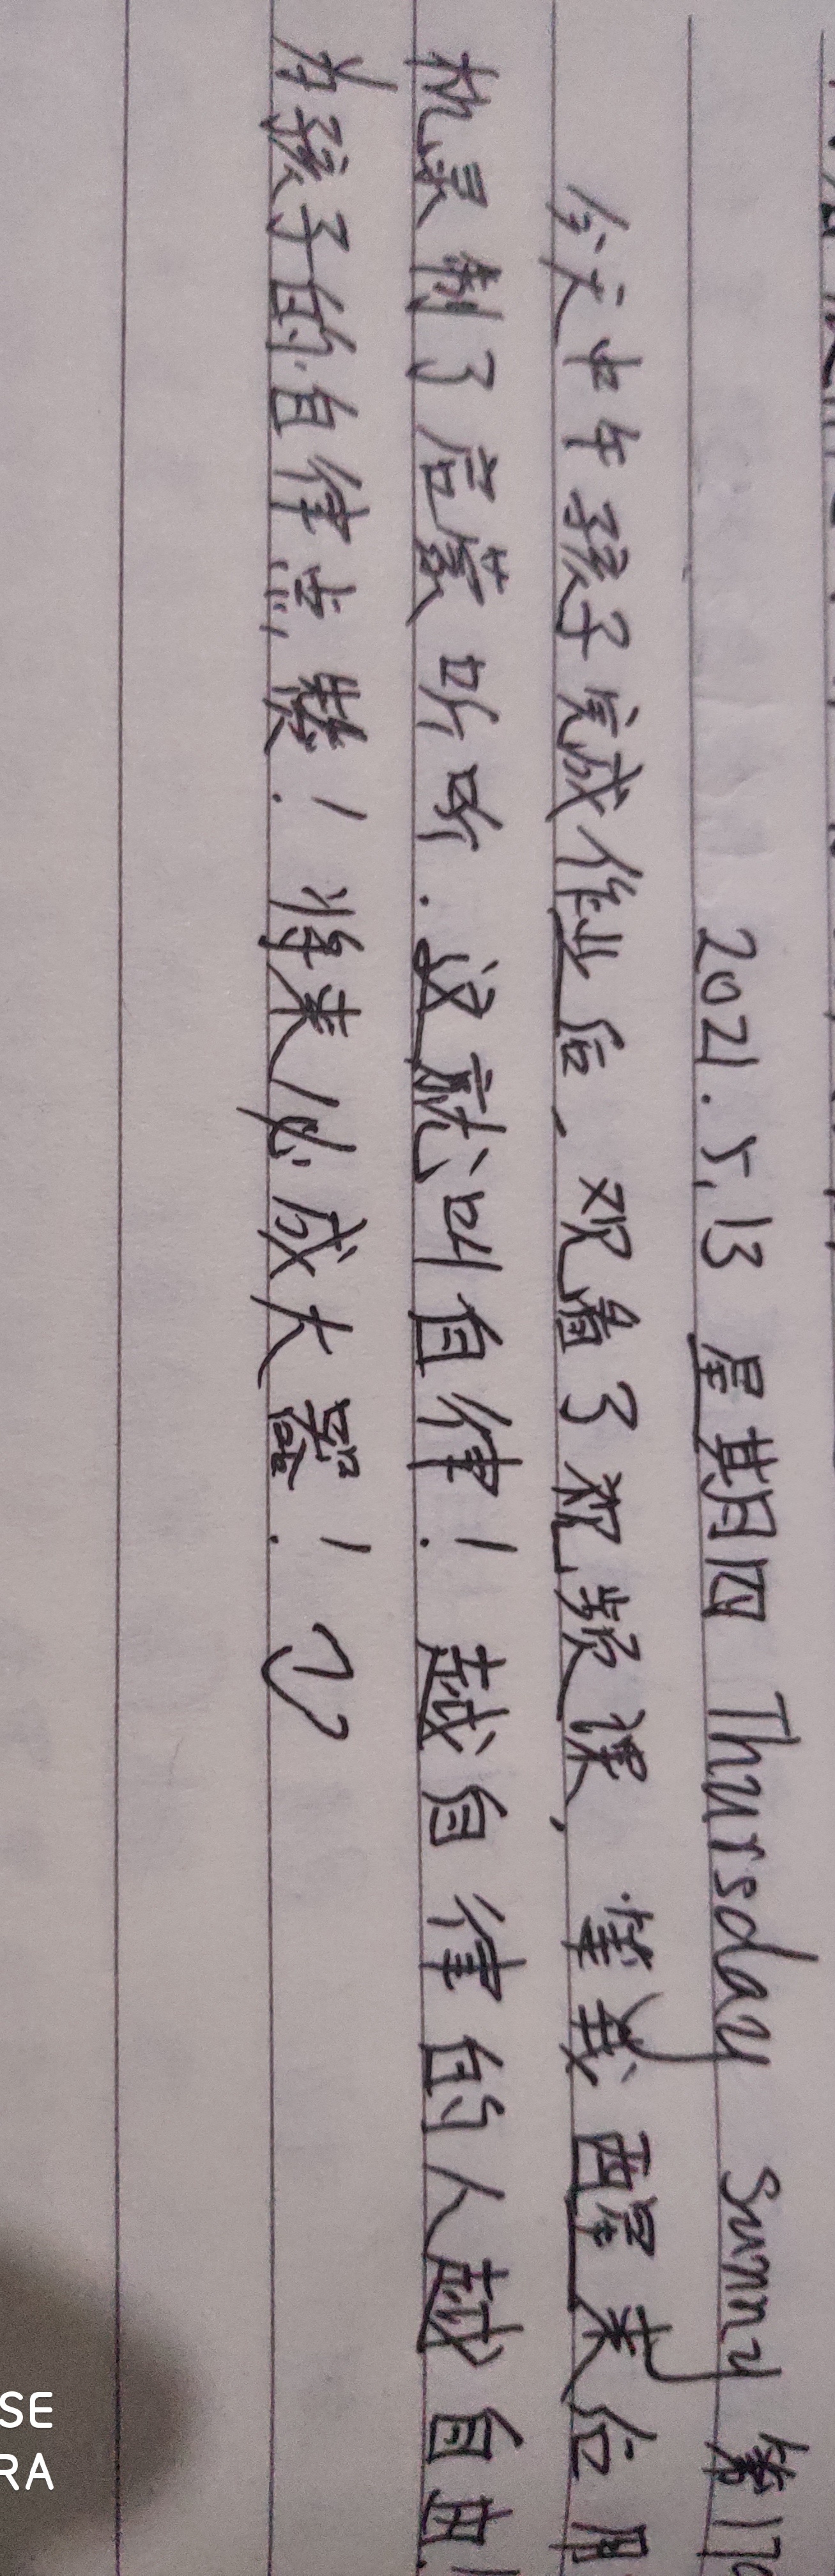 2021.5.13 星期四 Thursday sunny 第17
今天中午孩子完成作业后、观看了视频课, 等我醒来后用
机录制了启蒙听听.这就叫自律!越自律的人越自由!
为孩子的自律点赞!将来必成大器!
SE
RA